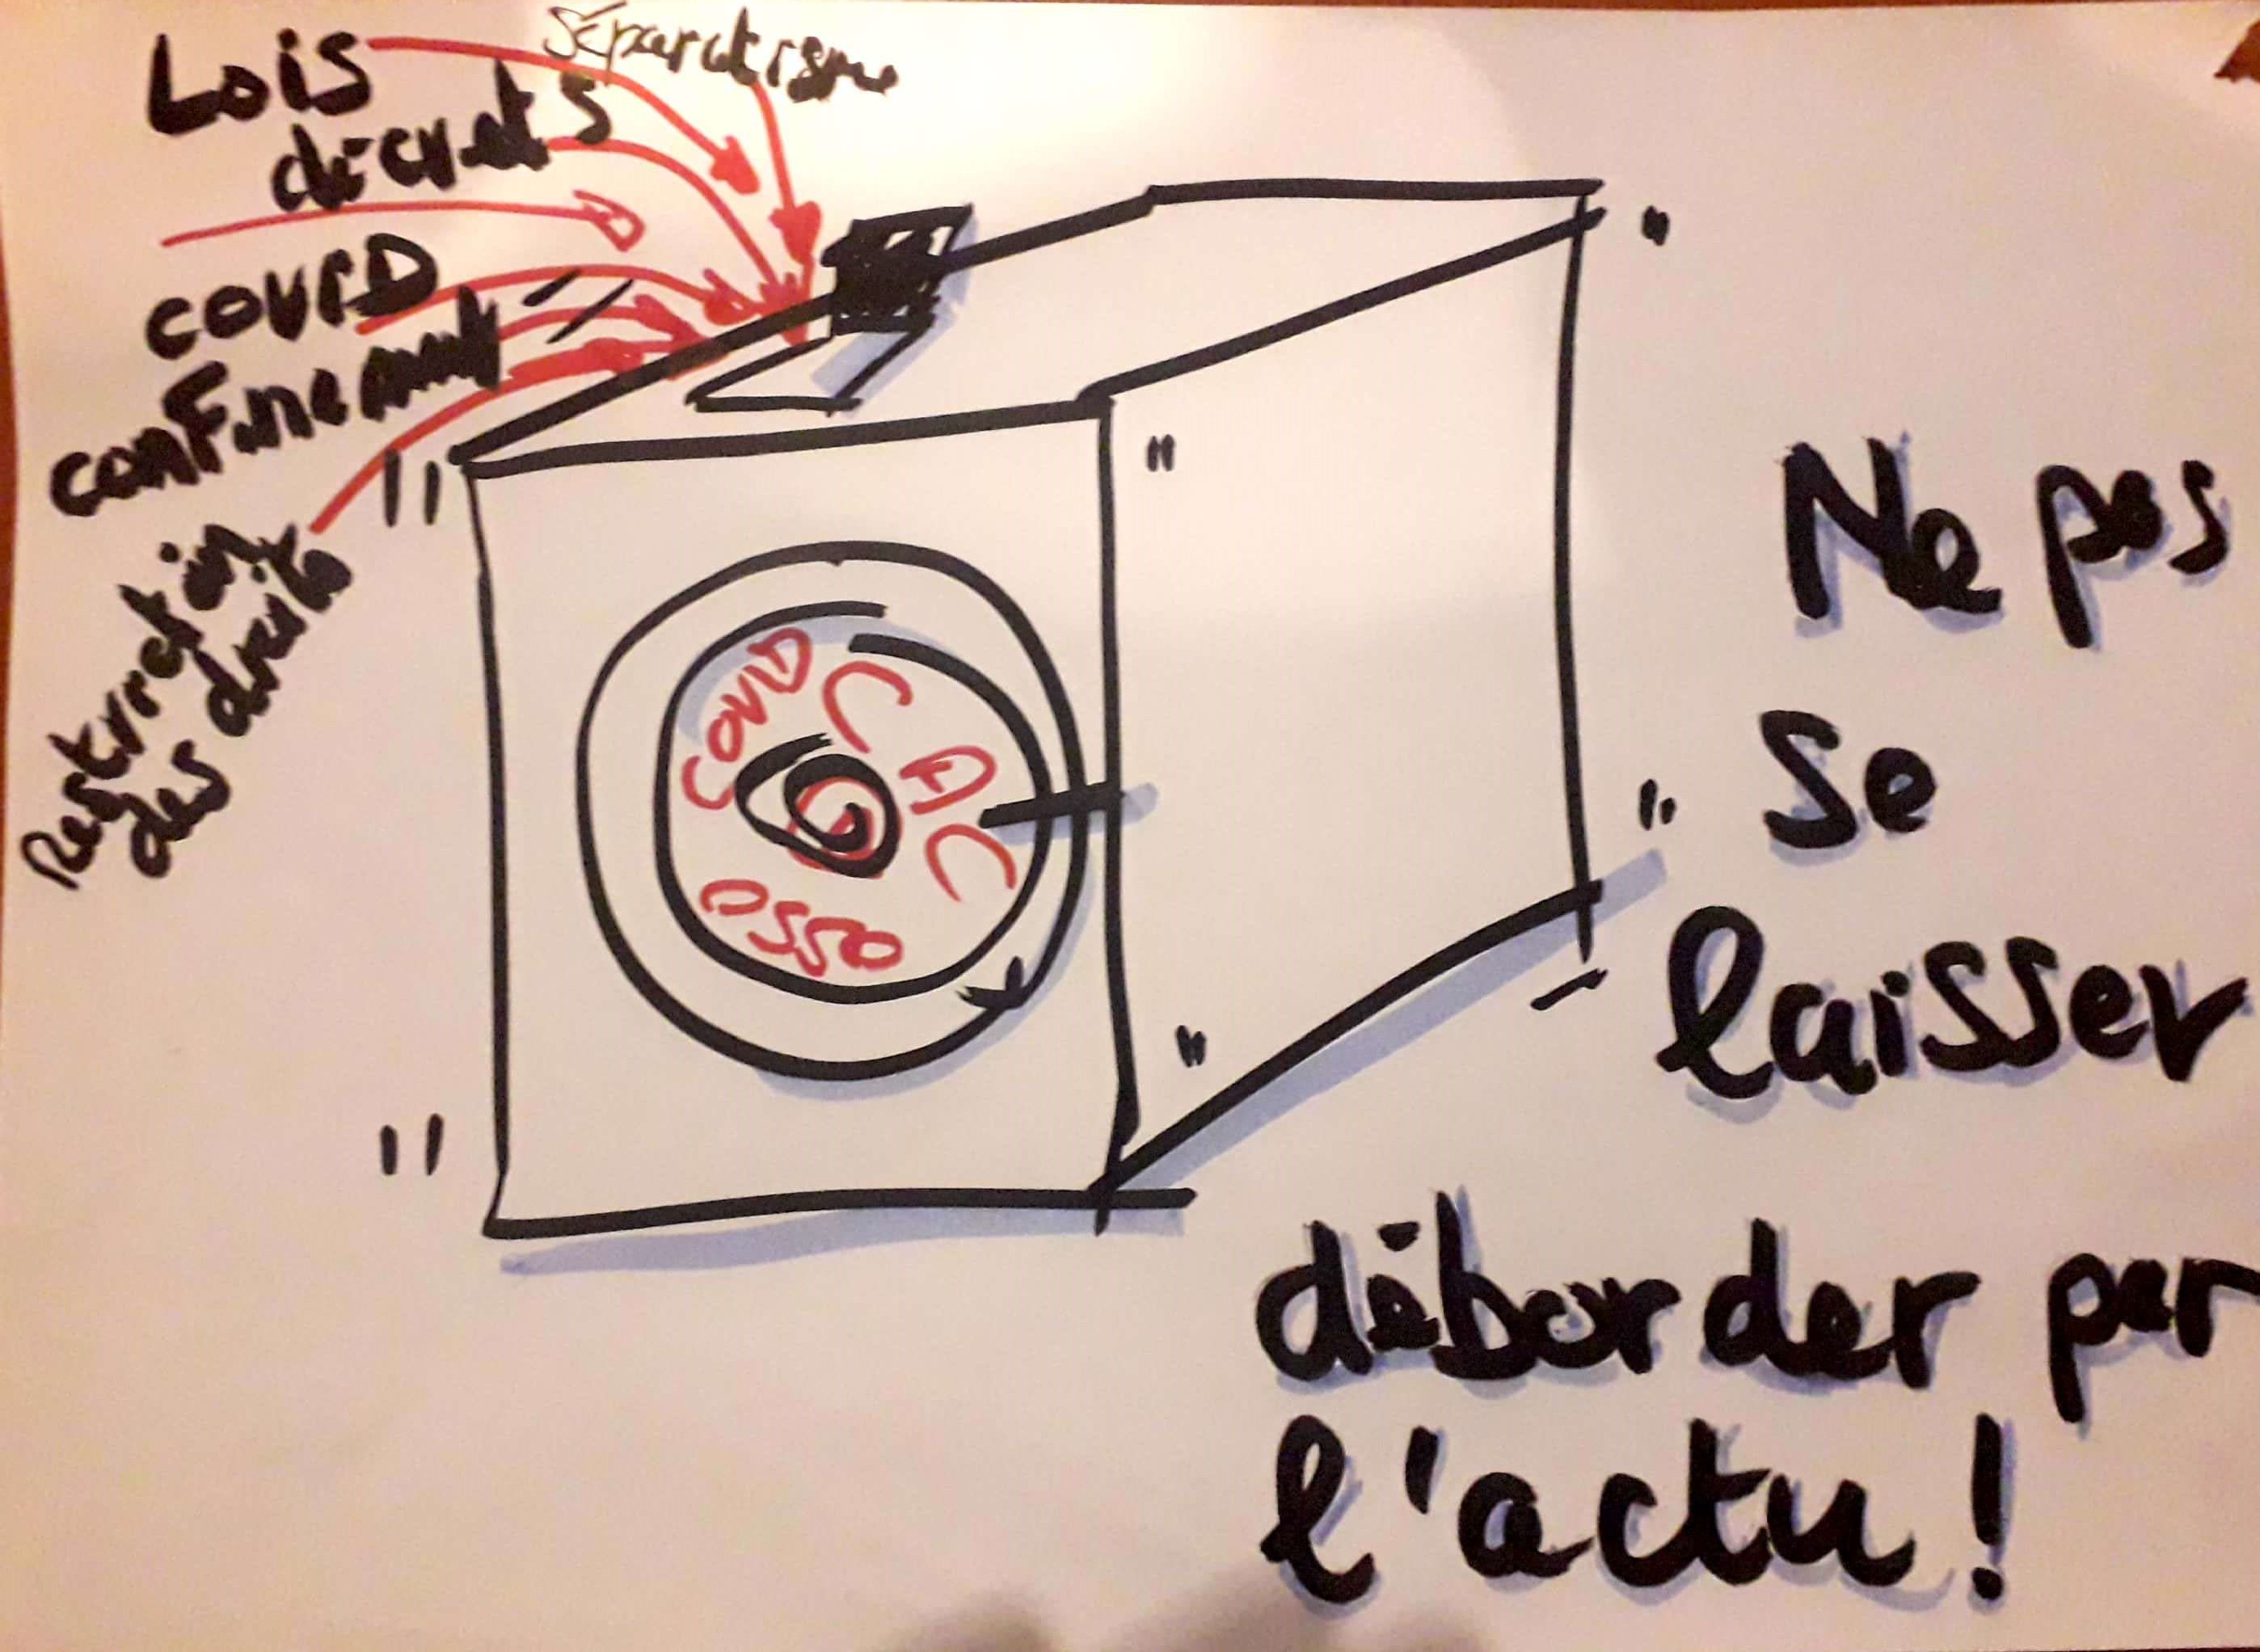 Lois
Séparatisme
décrets
COVID
confinement
Restriction
des droits
COVID
CAC
Ne pas
se
laisser
déborder par
l'actu !